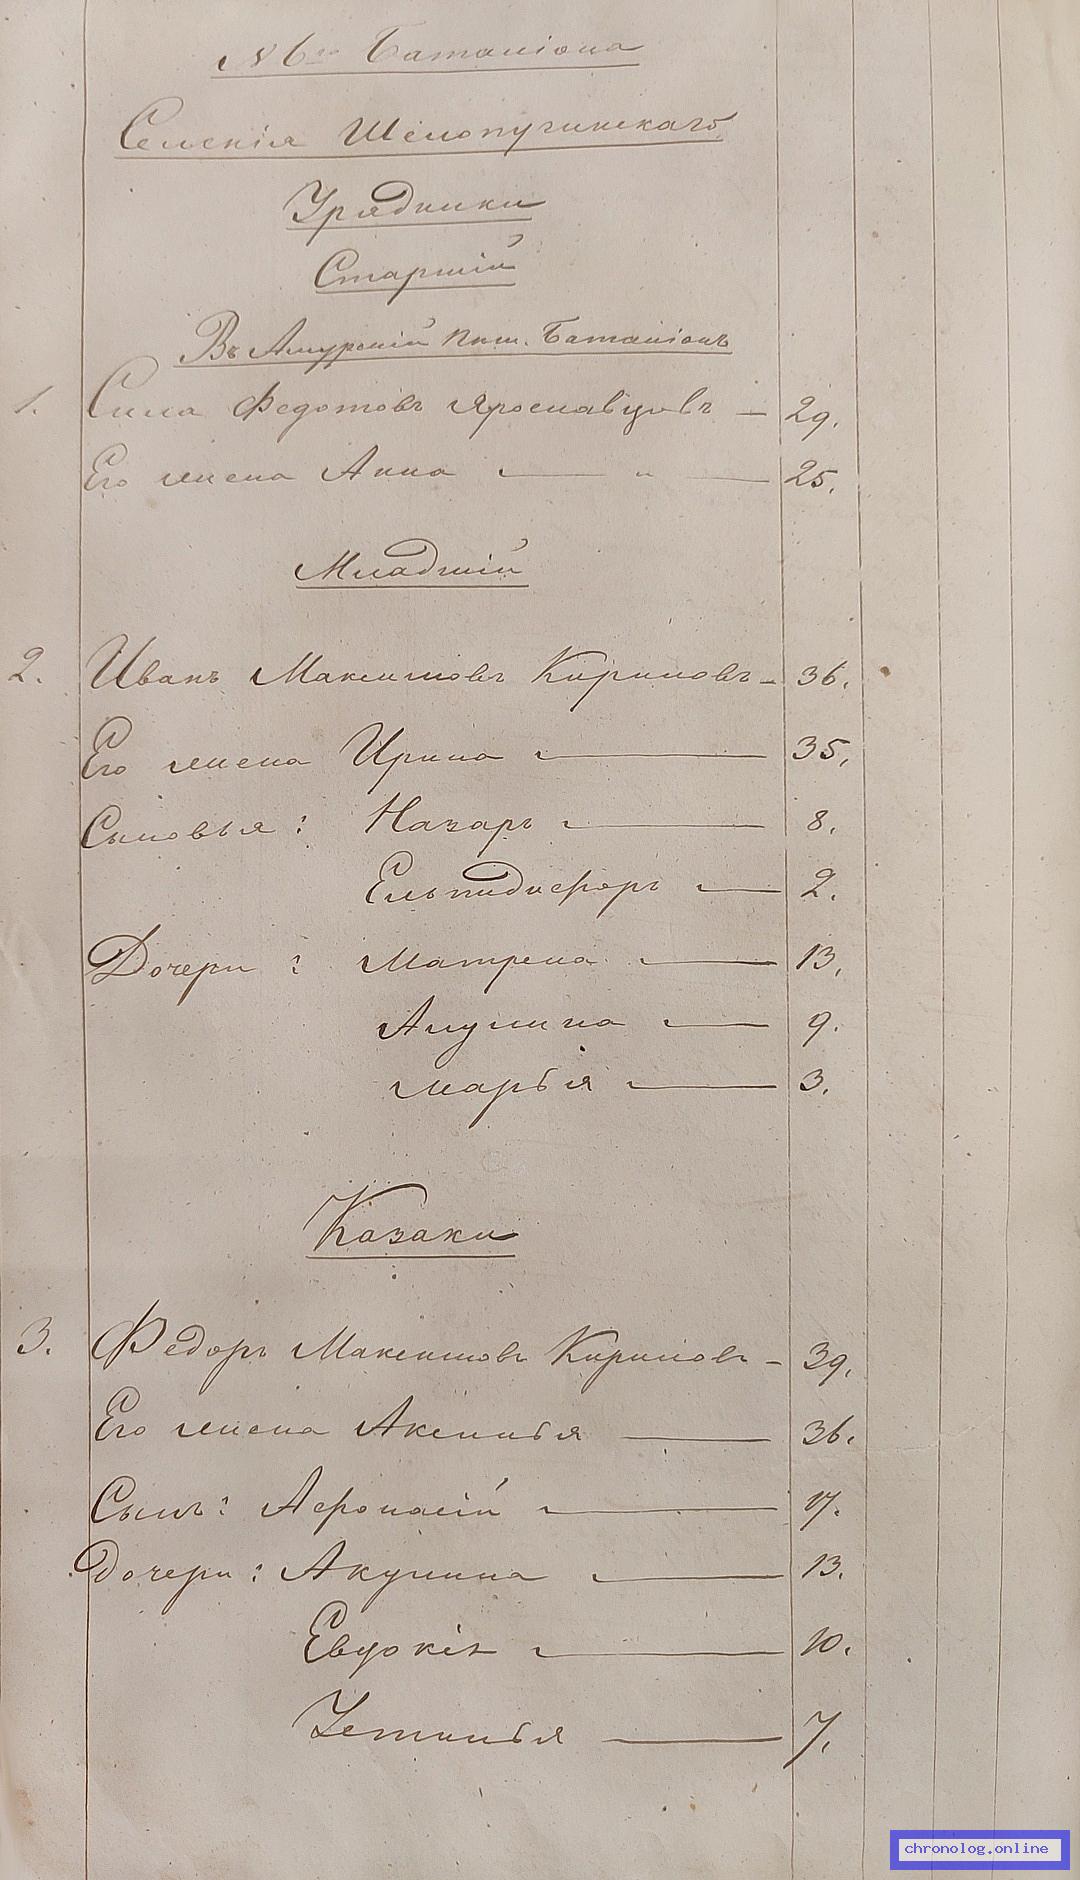 № 6го Баталіона
Селенія Шелопугинскаго
Урядники
Старшій
Въ Амурскій Пѣш. Баталіонъ
1. Сила Федотовъ Ярославцовъ — 29.
Его жена Анна — „ — 25.
Младшій
2. Иванъ Максимовъ Кириловъ — 36.
Его жена Ирина — 35,
Сыновья: Назаръ — 8.
Ельпидифоръ — 2.
Дочери: Матрена — 13,
Акулина — 9.
Марѳія — 3.
Казаки
3. Федоръ Максимовъ Кириловъ — 39,
Его жена Аксинья — 36.
Сынъ: Афонасій — 17.
Дочери: Акулина — 13.
Евдокія — 10.
Устинья — 7,
chronolog.online